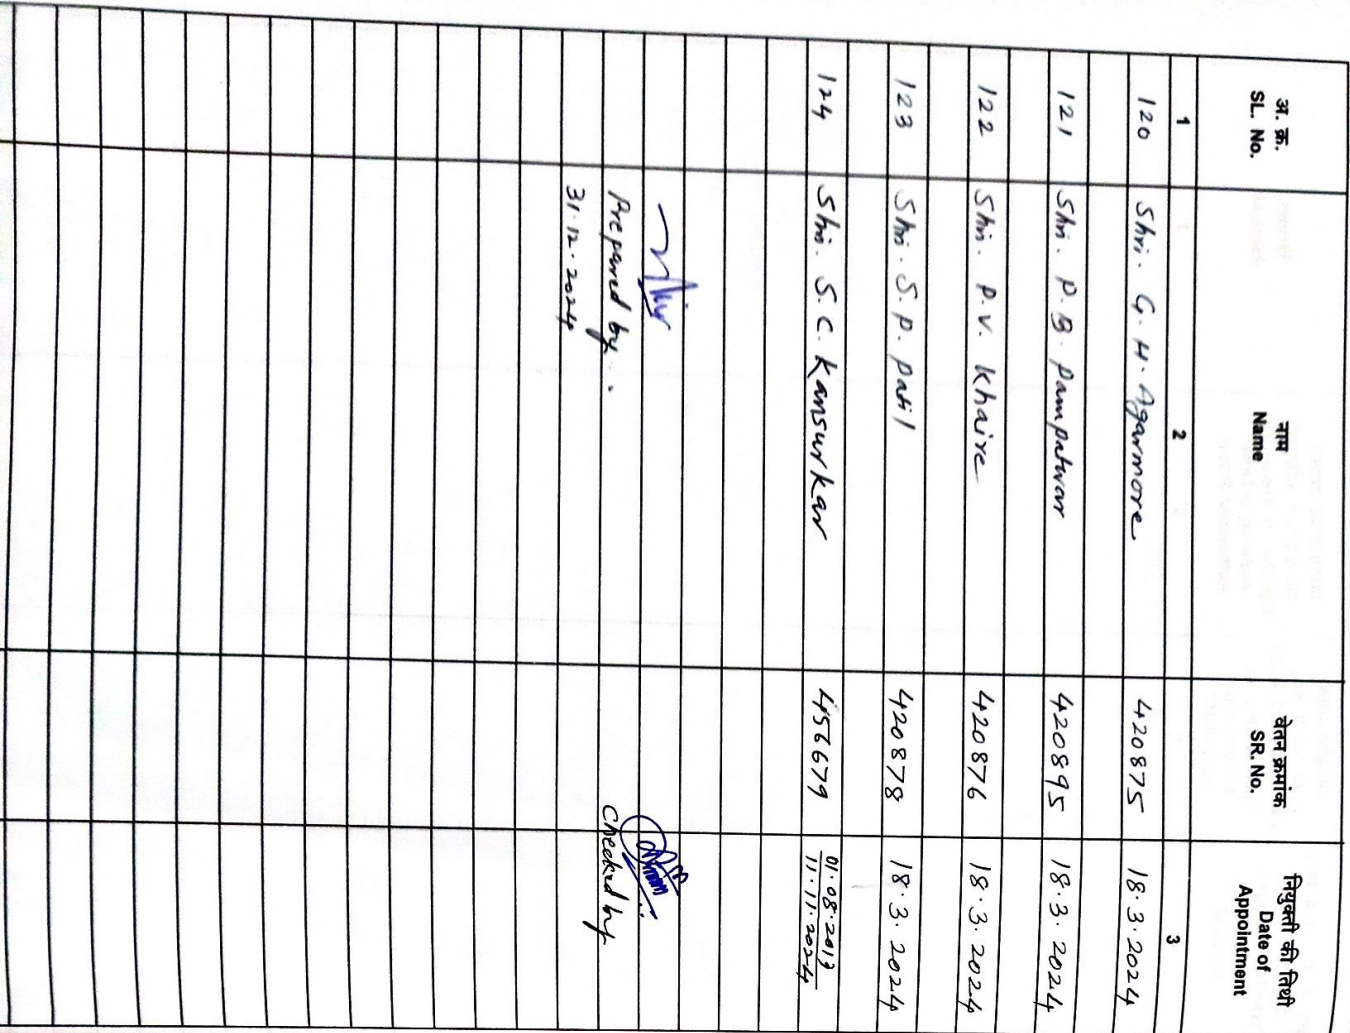 अ. क्र. नाम वेतन क्रमांक नियुक्ती की तिथी
SL. No. Name SR. No. Date of Appointment
1 2 3
120 Shri. G. H. Agarmore 420875 18.3.2024
121 Shri. P. B. Pampatwar 420895 18.3.2024
122 Shri. P. V. Khaire 420876 18.3.2024
123 Shri. S. P. Patil 420878 18.3.2024
124 Shri. S. C. Kansurkar 456679 01.08.2017
11.11.2024
Prepared by. Checked by
31.12.2024